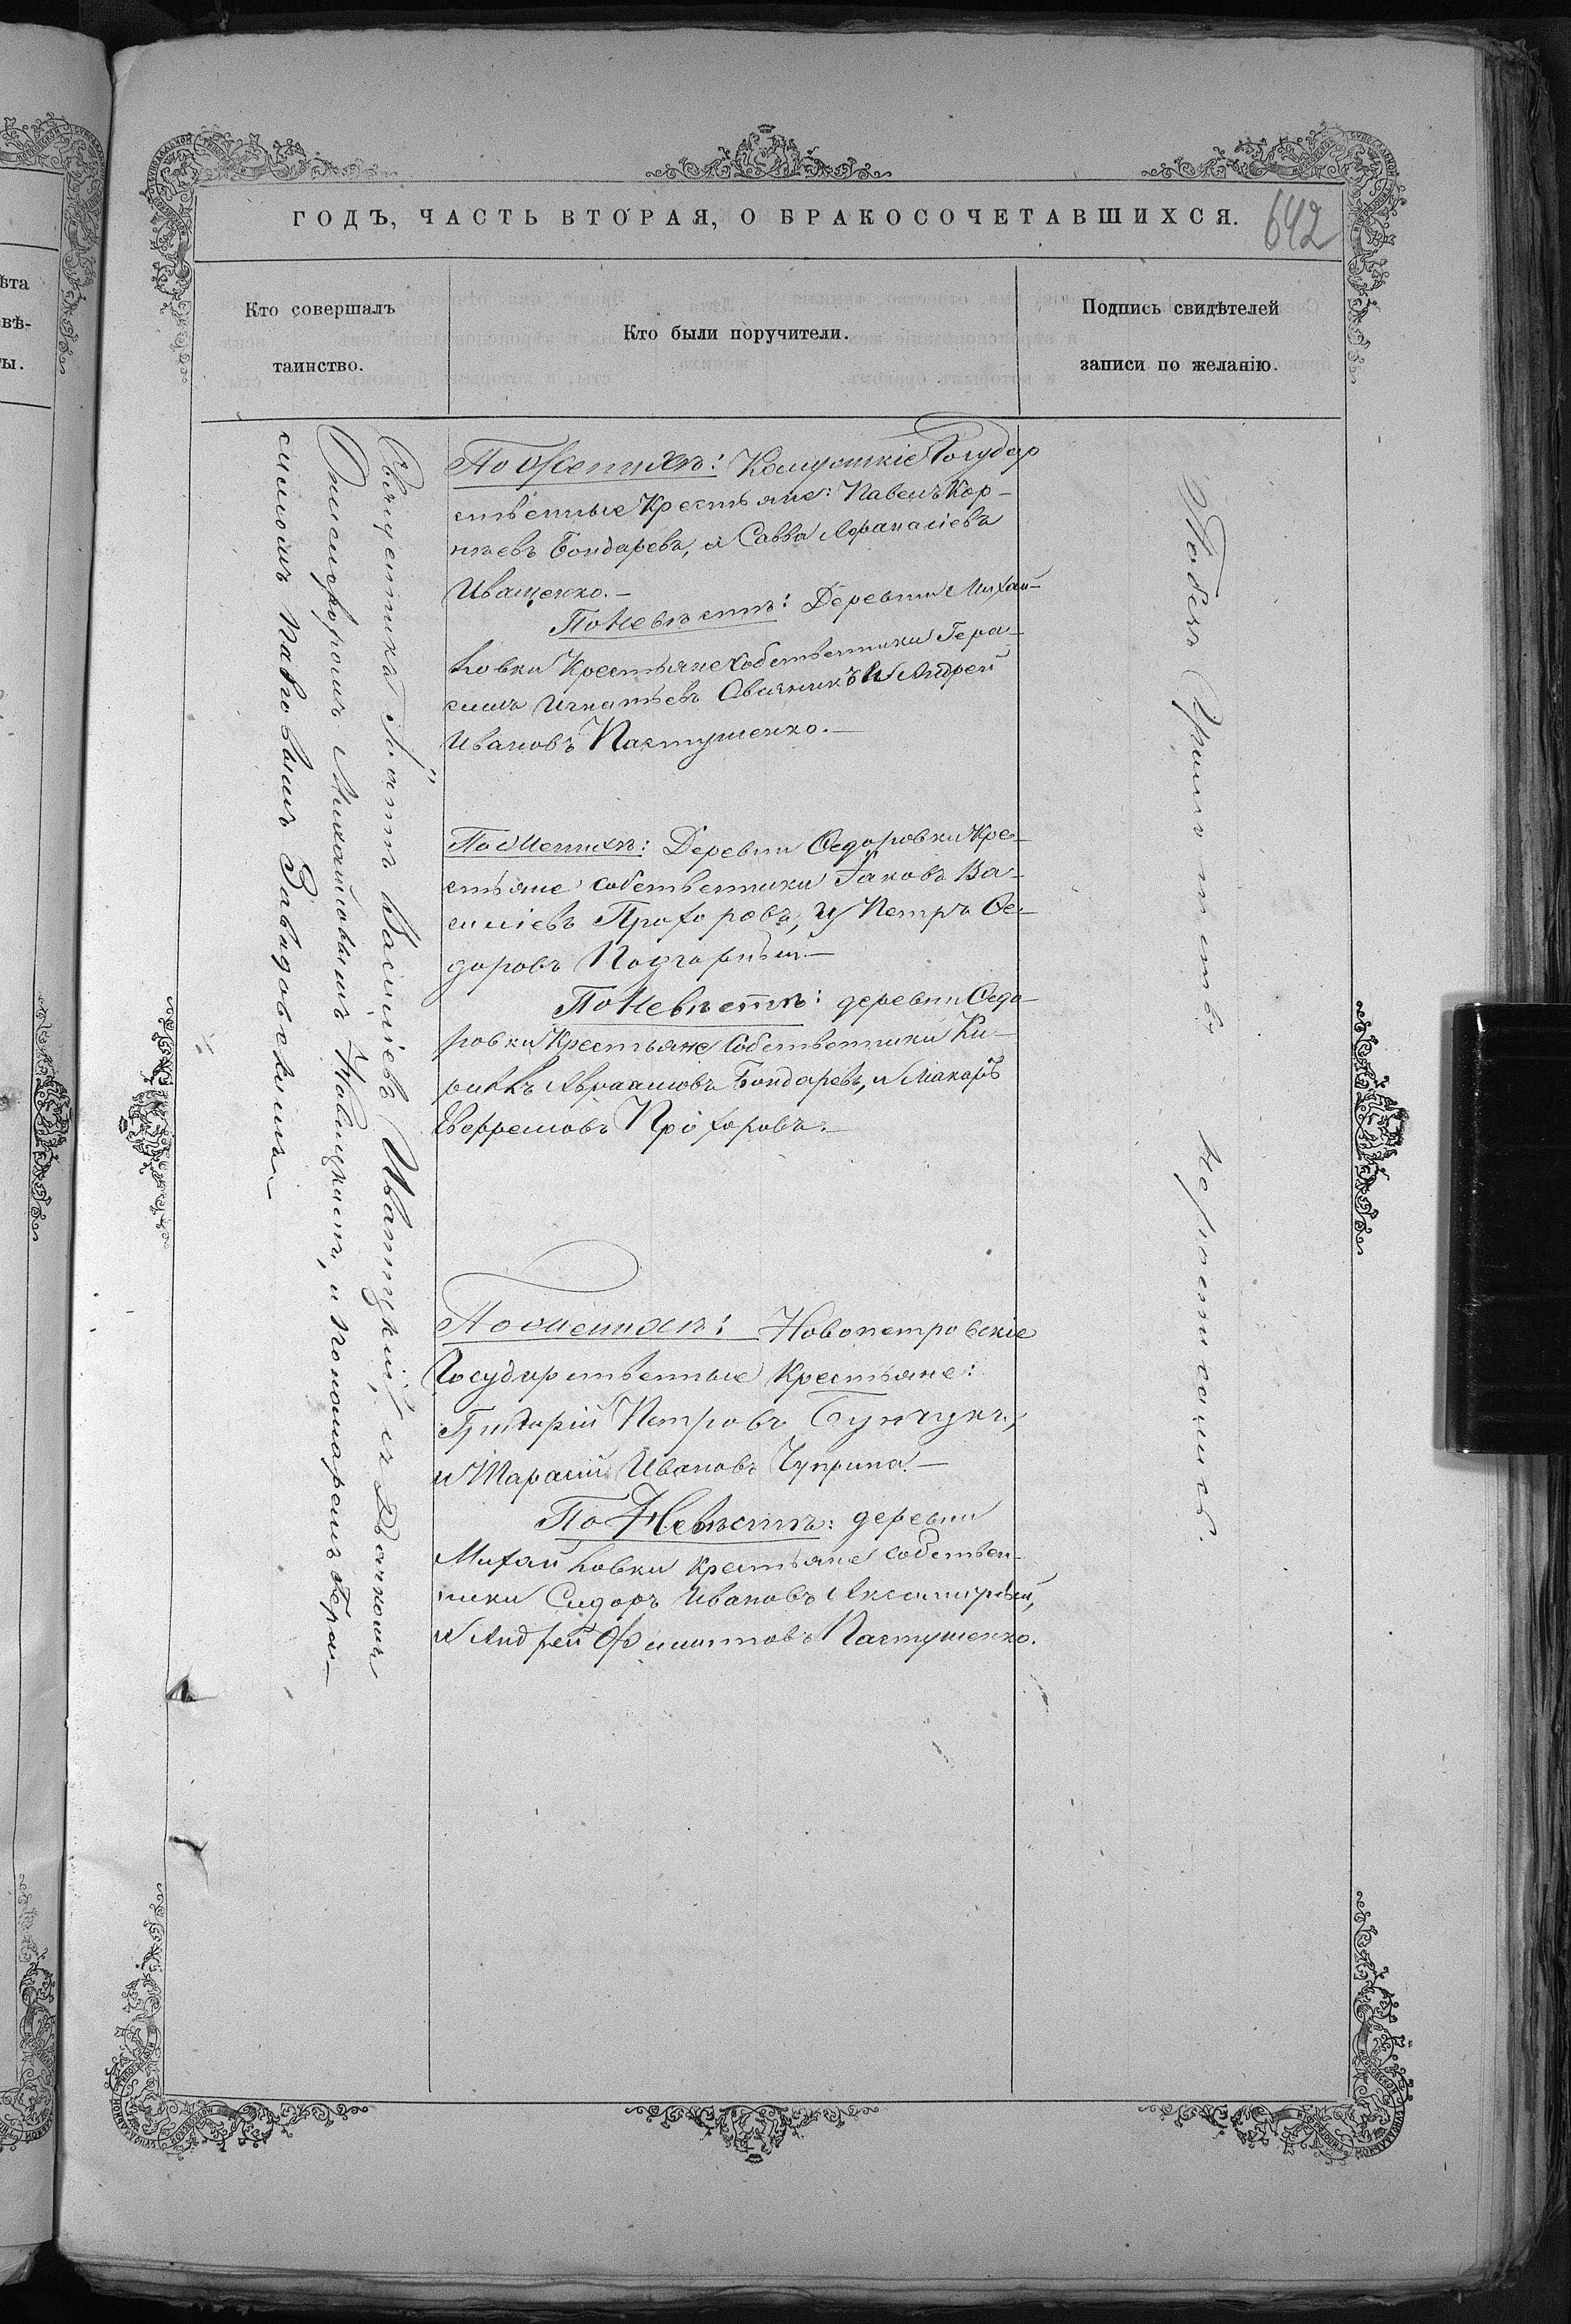 ГОДЪ, ЧАСТЬ ВТОРАЯ, О БРАКОСОЧЕТАВШИХСЯ.
642
Кто совершалъ
таинство.
Кто были поручители.
Подпись свидѣтелей
записи по желанію.
Священникъ Василіевъ Иваницкій, съ Дьячкомъ
Онисифоромъ Михайловымъ Навицкимъ, и пономаремъ Гера-
симомъ Павловымъ Завадовскимъ.
По Женихѣ: Государ
ственные Крестьяне: Павелъ Кор-
нѣевъ Бондаревъ, и Савва Афанасіевъ
Иващенко.-
По Невѣстѣ: Деревни Михай-
ловки Крестьяне Собственники Гера-
симъ Игнатьевъ и Андрей
Ивановъ Пастушенко.-
По Женихѣ: Деревни Ѳедоровки Кре-
стьяне собственники Іаковъ Ва-
силіевъ Прохоровъ, и Петръ Ѳе-
доровъ Подгорный-
По Невѣстѣ: деревни Ѳедо-
ровки Крестьяне Собственники Ки-
риллъ Авраамовъ Бондаревъ, и Макаръ
Ефремовъ Прохоровъ.-
По женихѣ: Новопетровскіе
Государственные Крестьяне:
Григорій Петровъ Бунчукъ,
и Тарасій Ивановъ Чуприна.-
По Невѣстѣ: деревни
Михайловки крестьяне собствен-
ники Сидоръ Ивановъ
и Андрей Филиповъ Пастушенко.